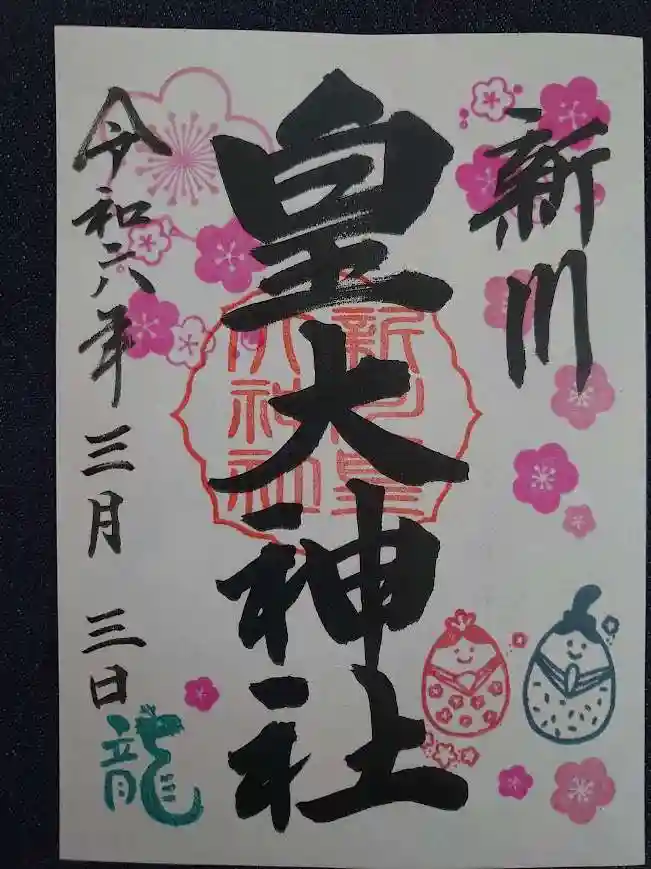 新川
皇大神社
新川皇
大神社
令和六年三月三日
龍